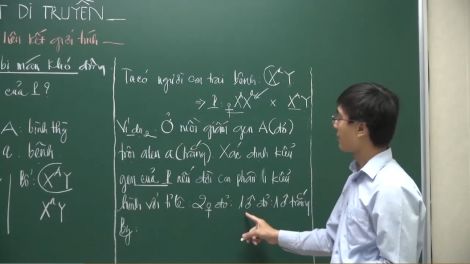 T DI TRUYỀN
liên kết giới tính
bị mắc khó đông
của P?
A: bình thg
a: bệnh
bố: XᴬY
XᴬY
Ta có người con trai bệnh: XᵃY
⇒ P ♀ XᴬXᵃ × XᴬY
Ví dụ 2: Ở ruồi giấm gen A (đỏ)
trội alen a (trắng). Xác định kiểu
gen của P nếu đời con phân li kiểu
hình với tỉ lệ 2♀ đỏ: 1♂ đỏ: 1♂ trắng
Bg: